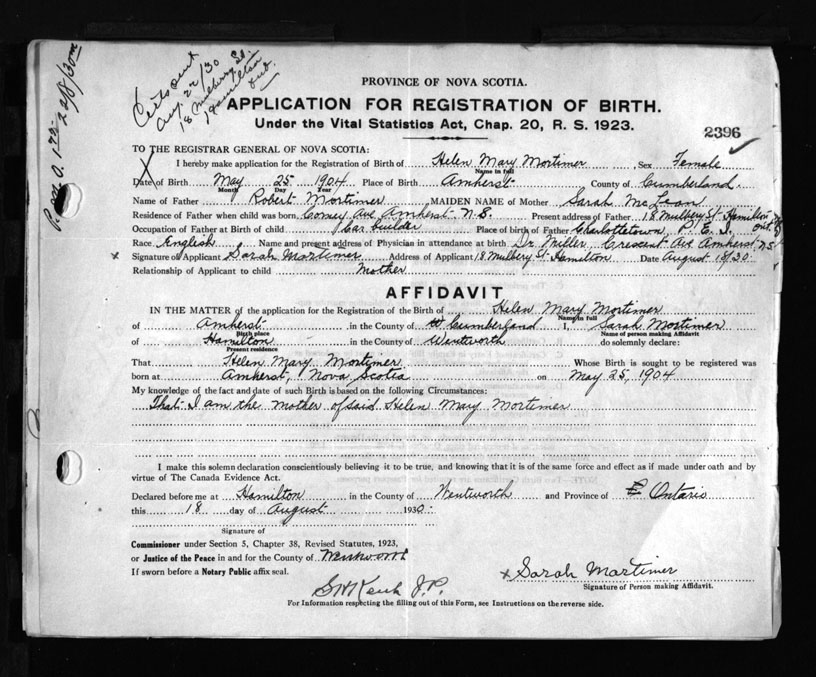 Cert sent
Aug. 22/30
18 Mulbery St.
Hamilton
Ont.
22/8/30
PROVINCE OF NOVA SCOTIA.
APPLICATION FOR REGISTRATION OF BIRTH.
Under the Vital Statistics Act, Chap. 20, R. S. 1923.
2396
TO THE REGISTRAR GENERAL OF NOVA SCOTIA:
I hereby make application for the Registration of Birth of Helen Mary Mortimer Sex Female
Name in full
Date of Birth May 25 1904 Place of Birth Amherst County of Cumberland.
Month Day Year
Name of Father Robert Mortimer MAIDEN NAME of Mother Sarah McLean
Residence of Father when child was born Comey Ave Amherst N.S. Present address of Father 18 Mulbery St Hamilton Ont.
Occupation of Father at Birth of child Car builder Place of birth of Father Charlottetown, P.E.I.
Race English Name and present address of Physician in attendance at birth Dr. Miller, Crescent Ave Amherst N.S
x Signature of Applicant Sarah Mortimer Address of Applicant 18 Mulbery St Hamilton Date August 18/30
Relationship of Applicant to child Mother
AFFIDAVIT
IN THE MATTER of the application for the Registration of the Birth of Helen Mary Mortimer
Name in full
of Amherst in the County of Cumberland I, Sarah Mortimer
Birth place Name of person making Affidavit
of Hamilton in the County of Wentworth do solemnly declare:
Present residence
That Helen Mary Mortimer Whose Birth is sought to be registered was
born at Amherst, Nova Scotia on May 25, 1904
My knowledge of the fact and date of such Birth is based on the following Circumstances:
That I am the mother of said Helen Mary Mortimer
I make this solemn declaration conscientiously believing it to be true, and knowing that it is of the same force and effect as if made under oath and by
virtue of The Canada Evidence Act.
Declared before me at Hamilton in the County of Wentworth and Province of Ontario
this 18 day of August 1930
Signature of
Commissioner under Section 5, Chapter 38, Revised Statutes, 1923,
or Justice of the Peace in and for the County of Wentworth
If sworn before a Notary Public affix seal.
x Sarah Mortimer
Signature of Person making Affidavit.
J.P.
For Information respecting the filling out of this Form, see Instructions on the reverse side.